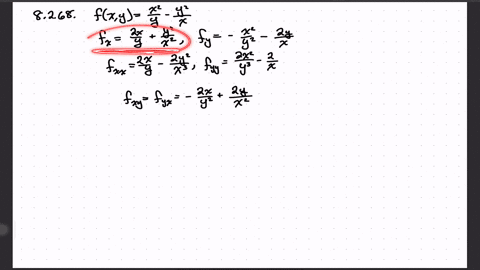 8.268. f(x,y) = x²/y - y²/x
fₓ = 2x/y + y²/x², f_y = - x²/y² - 2y/x
fₓₓ = 2x/y - 2y²/x³, f_yy = 2x²/y³ - 2/x
f_xy = f_yx = - 2x/y² + 2y/x²